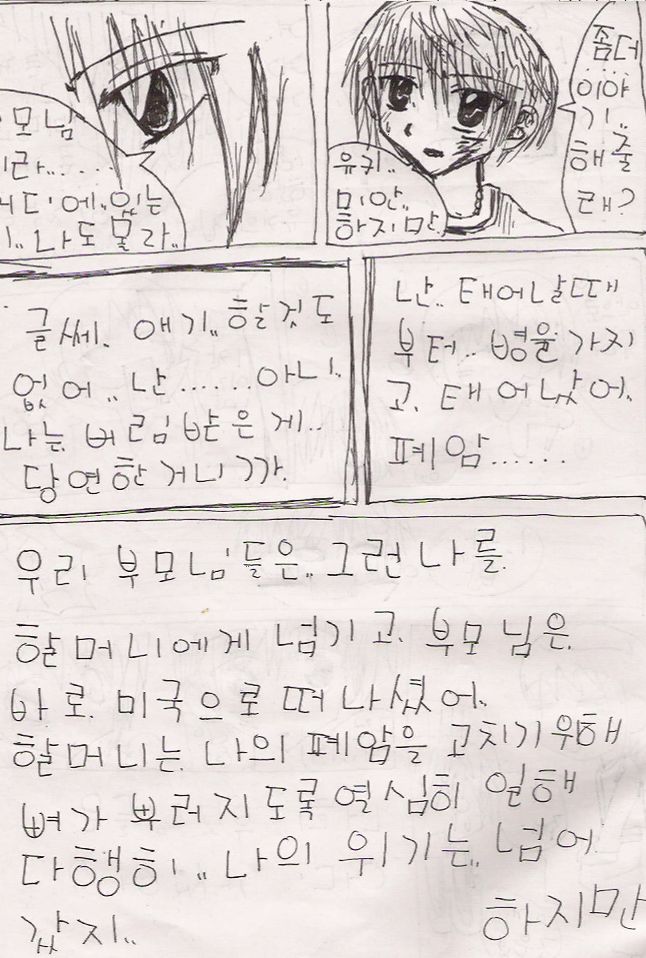 모님
라......
디에..있는
..나도 몰라..
좀더
이야
기..
해줄
래?
유키..
미안..
하지만..
글쎄. 애기..할것도
없어..난.......아니..
나는. 버림받은게..
당연한거니까.
난..태어날때
부터..병을가지
고. 태어났어..
폐암......
우리 부모님들은..그런나를.
할머니에게 넘기고. 부모님은.
바로. 미국으로 떠나셨어..
할머니는. 나의 폐암을 고치기위해
뼈가 뿌러지도록 열심히 일해
다행히..나의 위기는..넘어
갔지..
하지만